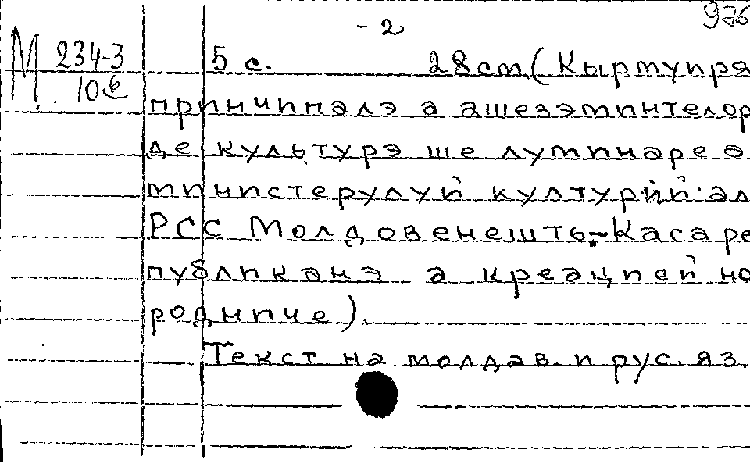 - 2
976
М 234-3
10е
5 с. 28 cm (Кыртупря
принчипалэ а ашезэминтелор
де культурэ ше луминаре а
министерулуй културий ал
РСС Молдовенешть. Касаре
публиканэ а креацией но
родниче).
Текст на молдав. и рус. яз.